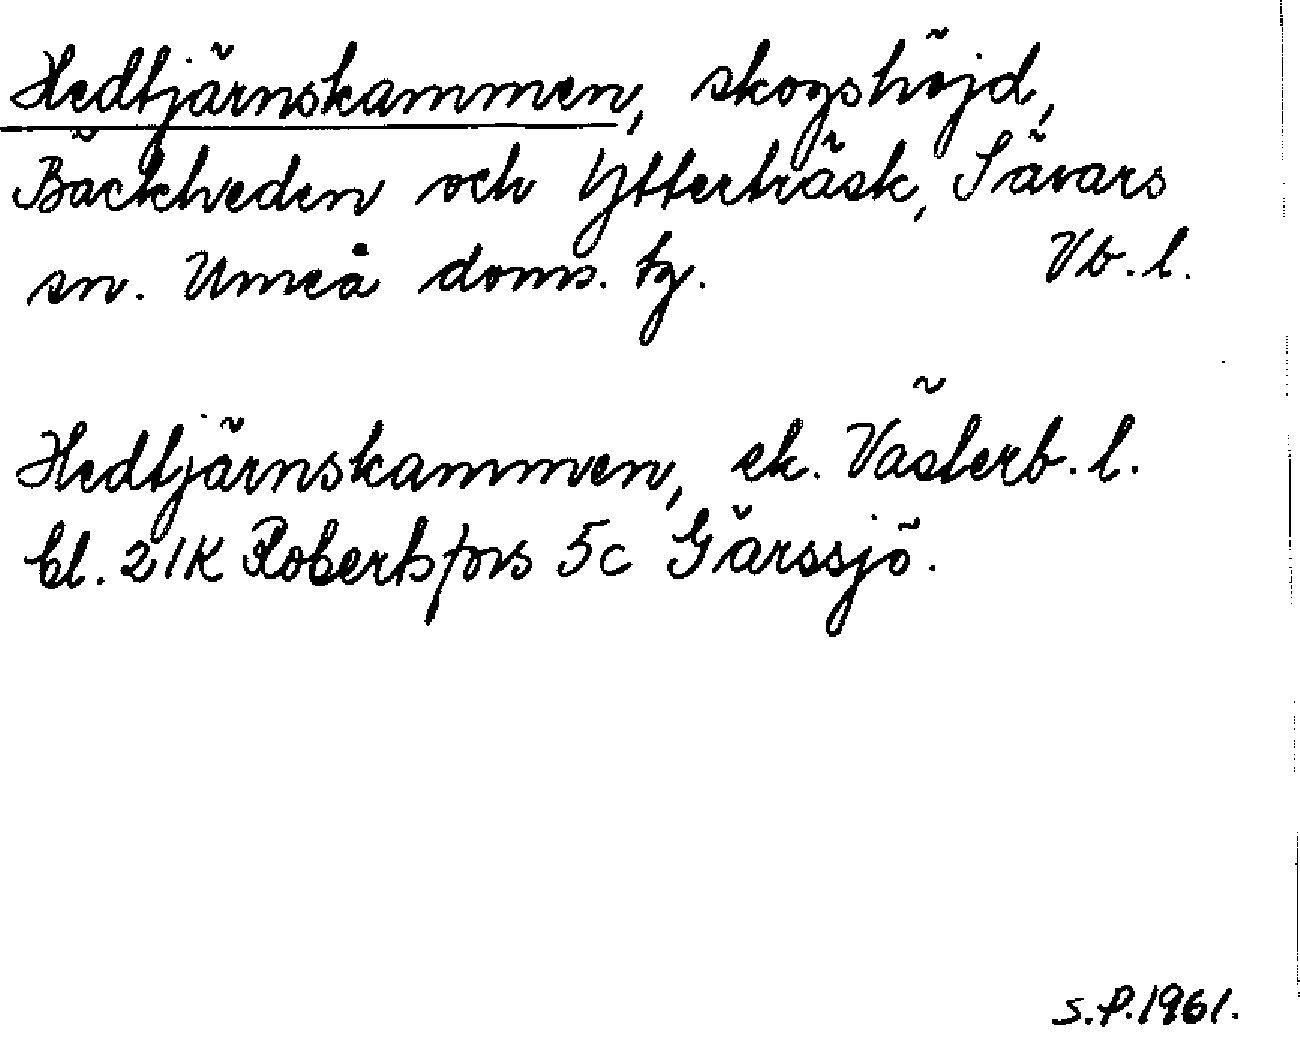 Hedtjärnskammen, skogshöjd,
Bäckheden och Ytterträsk, Sävars
sn. Umeå doms. tg. Vb. l.
Hedtjärnskammen, ek. Västerb. l.
bl. 21K Robertsfors 5c Gärssjö.
S.P. 1961.